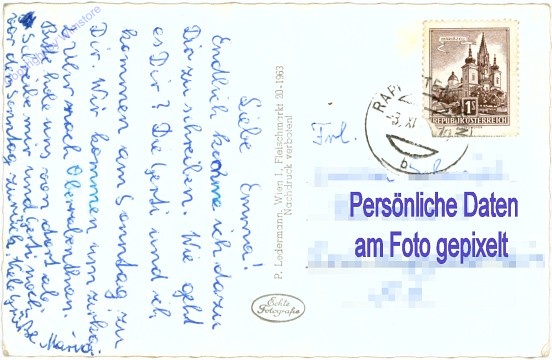 Liebe Emma!
Endlich komme ich dazu
Dir zu schreiben. Wie geht
es Dir? Die Gerti und ich
kommen am Sonntag zu
Dir. Wir kommen um zirka
Uhr nach
Bitte hole uns von dort ab.
Schreibe mir und Gerti noch
vor dem Sonntag zurück
Maria
P. Ledermann, Wien I, Fleischmarkt 20 - 1963
Nachdruck verboten!
Echte
Fotografie
Frl.
1S
REPUBLIK ÖSTERREICH
Persönliche Daten
am Foto gepixelt